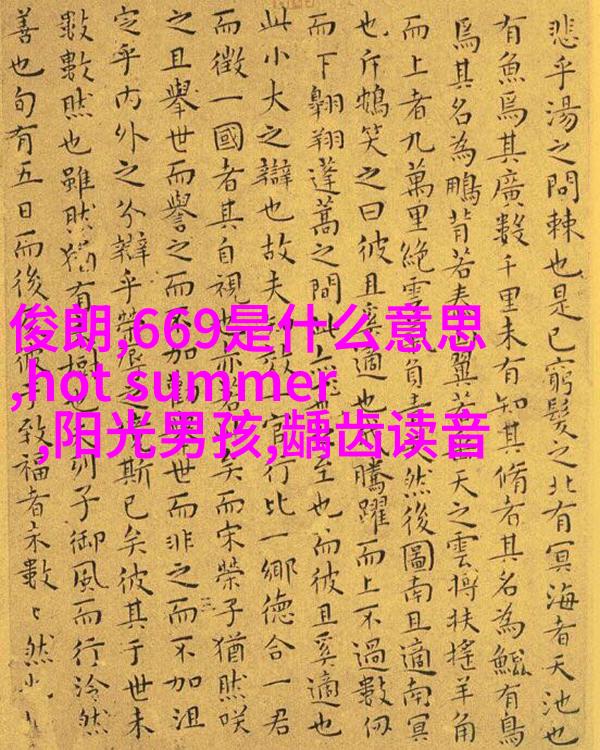 悲乎湯之問棘也是已窮髮之北有冥海者天池也
有魚焉其廣數千里未有知其脩者其名為鯤有鳥
焉其名為鵬背若泰翼若天之雲摶扶搖羊角
而上者九萬里絕雲負然後圖南且適南冥
也斥鴳笑之曰彼且奚適也騰躍而上不過數仞
而下翱翔蓬蒿之間此至也而彼且奚適也
此小大之辯也故夫一官行比一鄉德合一君
而徵一國者其自視也亦若矣而宋榮子猶然咲
之且舉世而譽之而不加世而非之而不加沮
定乎內外之分辯乎榮辱之斯已矣彼其于世未
數數然也雖然猶有樹也列子御風而行泠然
善也旬有五日而後彼于致福者未數〻然
俊朗,669是什么意思
,hot summer
,阳光男孩,龋齿读音